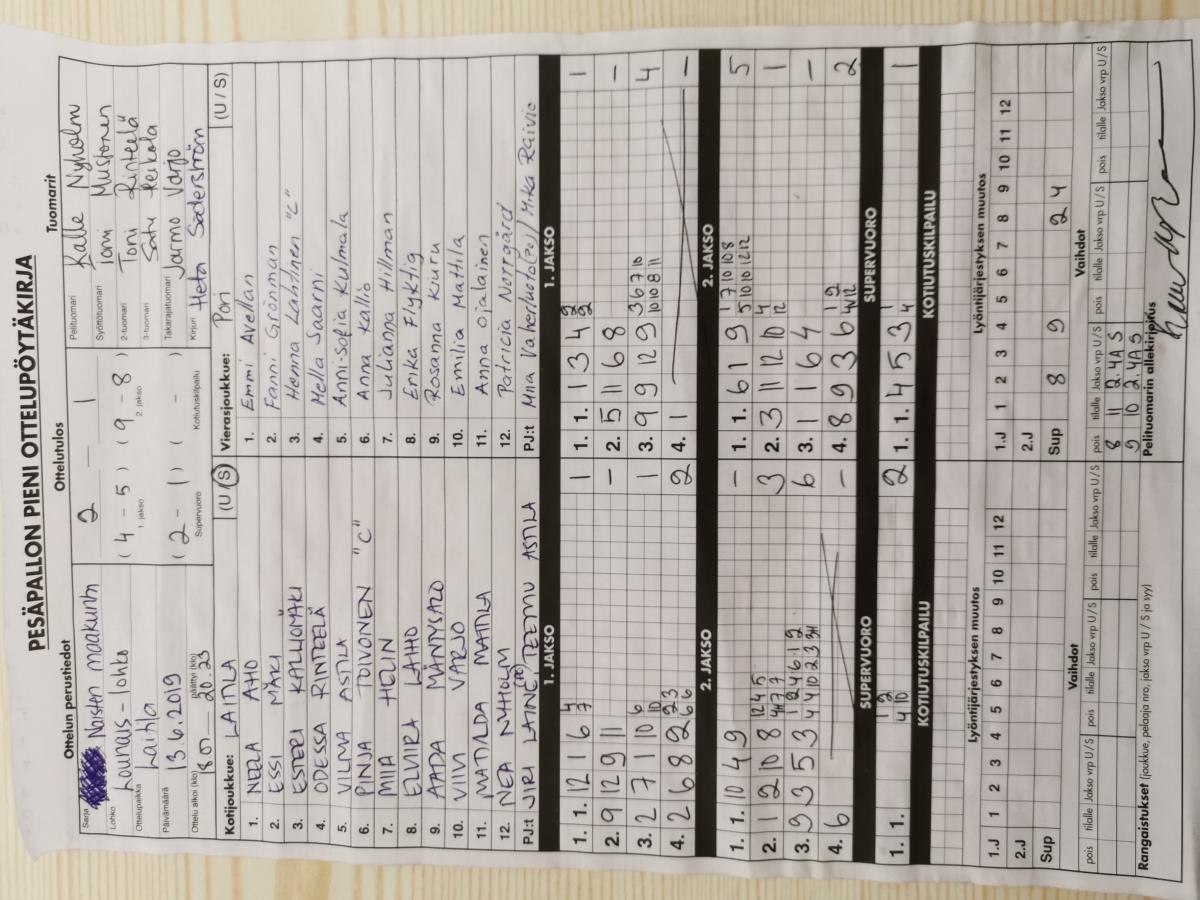 PESÄPALLON PIENI OTTELUPÖYTÄKIRJA
Ottelun perustiedot
Sarja Naisten maakunta
Lohko Lounais-lohko
Ottelupaikka Laitila
Päivämäärä 13.6.2019
Ottelu alkoi (klo) 18.05 päättyi (klo) 20.23
Ottelutulos
2 – 1
(4 – 5) (9 – 8)
1. jakso 2. jakso
(2 – 1) ( – )
Supervuoro Kotiutuskilpailu
Tuomarit
Pelituomari Kalle Nyholm
Syöttötuomari Tomi Mustonen
2-tuomari Toni Rinteelä
3-tuomari Satu Reikola
Takarajatuomari Jarmo Varjo
Kirjuri Heta Söderström
Kotijoukkue: LAITILA (U / S)
1. NEEA AHO
2. ESSI MÄKI
3. ESTERI KALLIOMÄKI
4. ODESSA RINTEELÄ
5. VILMA ASTILA
6. PINJA TOIVONEN "C"
7. MIIA HELIN
8. ELVIIRA LAIHO
9. AADA MÄNTYSALO
10. VIIVI VARJO
11. MATILDA MATTILA
12. NEA NYHOLM
PJ:t JIRI LAINE (PE) / TEEMU ASTILA
Vierasjoukkue: Pori (U / S)
1. Emmi Avellan
2. Fanni Grönman
3. Henna Lahtinen "C"
4. Mella Saarni
5. Anni-Sofia Kulmala
6. Anna Kallio
7. Julianna Hillman
8. Erika Flyktig
9. Rosanna Kuru
10. Emilia Mattila
11. Anna Ojalainen
12. Patricia Norrgård
PJ:t Miia Vaherluoto (PE) / Mika Raivio
1. JAKSO
1. 1. 12 1 6 4 7 1
2. 9 12 9 11 –
3. 2 7 1 10 6 10 1
4. 2 6 8 2 2 3 6 6 2
2. JAKSO
1. 1. 10 4 9 –
2. 1 2 10 8 1 2 4 5 4H 7 7 3
3. 9 3 5 3 2 4 6 1 2 4 4 10 2 3 3H 6
4. 6 –
SUPERVUORO
1. 1. 1 2 4 10 2
KOTIUTUSKILPAILU
1. JAKSO
1. 1. 1 3 4 2 2 1
2. 5 11 6 8 –
3. 9 9 12 9 3 6 7 10 10 10 8 11 4
4. 1 –
2. JAKSO
1. 1. 6 1 9 1 7 10 10 8 5 10 10 12 12 5
2. 3 11 12 10 4 12 1
3. 1 1 6 4 –
4. 8 9 3 6 1 9 4H 12 2
SUPERVUORO
1. 1. 4 5 3 1 4 1
KOTIUTUSKILPAILU
Lyöntijärjestyksen muutos
1.J 1 2 3 4 5 6 7 8 9 10 11 12
2.J
Sup
Lyöntijärjestyksen muutos
1.J 1 2 3 4 5 6 7 8 9 10 11 12
2.J
Sup 8 9 2 4
Vaihdot
pois tilalle Jakso vrp U / S pois tilalle Jakso vrp U / S pois tilalle Jakso vrp U / S
Vaihdot
pois tilalle Jakso vrp U / S pois tilalle Jakso vrp U / S pois tilalle Jakso vrp U / S
8 11 2. 4A S
9 10 2. 4A S
Rangaistukset (joukkue, pelaaja nro, jakso vrp U / S ja syy)
Pelituomarin allekirjoitus